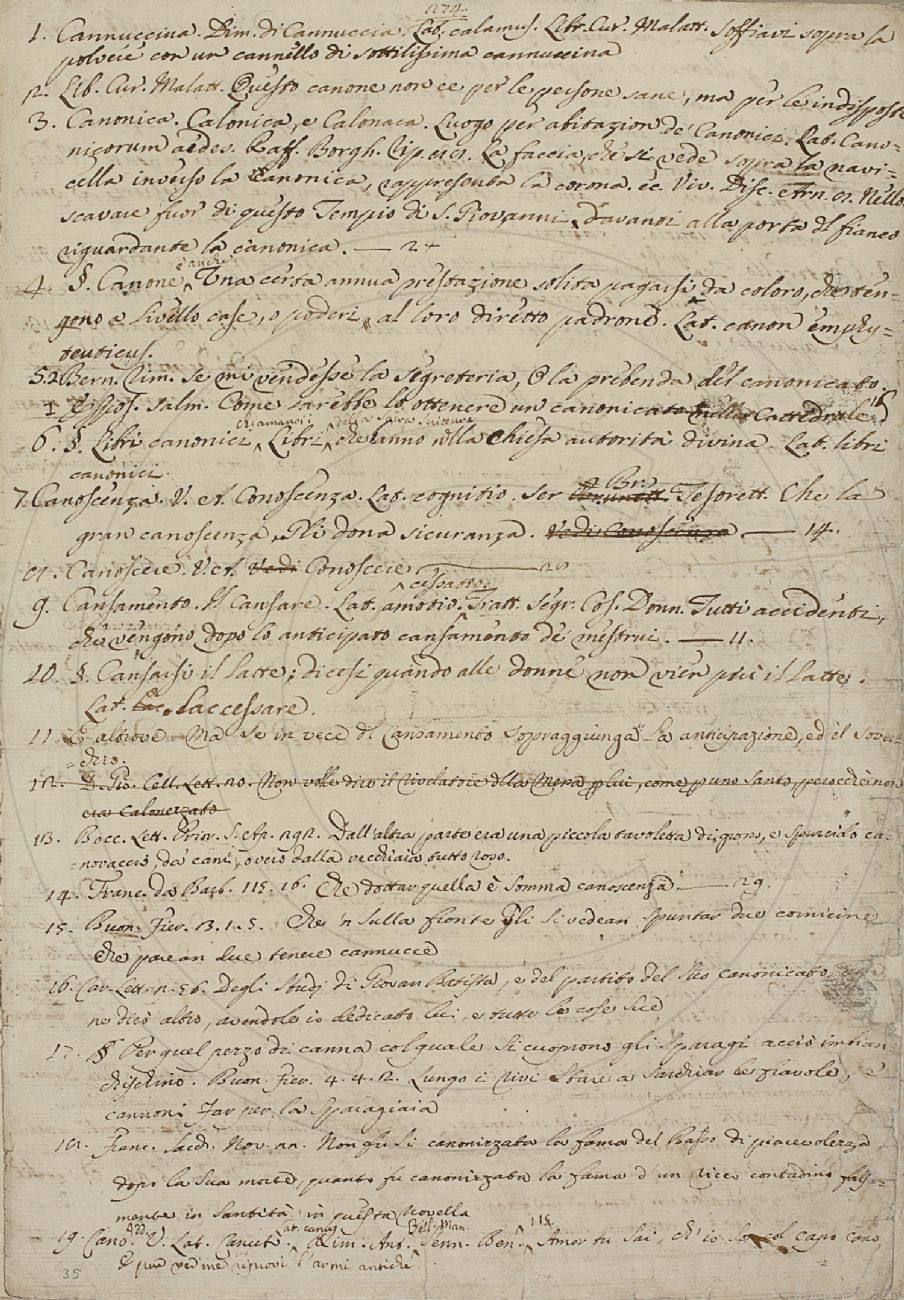 1274.
1. Cannuccina. Dim. di Cannuccia. Lat. calamus. Libr. Cur. Malatt. Soffiavi sopra la
polvere con un cannello di sottilissima cannuccina
2. Lib. Cur. Malatt. Questo canone non ee per le persone sane, ma per le indisposte
3. Canonica. Calonica, e Calonaca. Luogo per abitazion de' Canonici. Lat. Cano-
nicorum aedes. Raff. Borgh. Rip. La faccia, che si vede sopra la navi-
cella inverso la Canonica, rappresenta la corona. ec. Viv. Disc. Arn. Nello
scavare fuor di questo Tempio di S. Giovanni, davanti alla porta del fianco
riguardante la canonica. — 24
4. §. Canone, è anche Una certa annua prestazione solita pagarsi da coloro, che ten-
gono a livello case, o poderi, al loro diretto padrone. Lat. canon emphy-
teuticus.
5. 2 Bern. Rim. Se mi vendesse la segreteria, O la prebenda del canonicato.
1 Espos. Salm. Come sarebbe lo ottenere un canonicato nella Cattedrale 16
6. §. Libri canonici chiamansi i Libri della Sacra Scrittura che anno nella Chiesa autorità divina. Lat. libri
canonici.
7. Canoscenza. V. A. Conoscenza. Lat. cognitio. Ser Brunett. Br. Tesorett. Che la
gran canoscenza, Gli dona sicuranza. Vedi Conoscenza — 14.
8. Canoscere. V. A. Vedi Conoscere. — 28
9. Cansamento. Il Cansare. Lat. amotio. cessatio. Tratt. Segr. Cos. Donn. Tutti accidenti,
che vengono dopo lo anticipato cansamento de' mestrui. — 11.
10. §. Cansarsi il latte; dicesi quando alle donne non vien più il latte.
Lat. Lac. lac cessare.
11. E altrove. Ma se in vece del cansamento sopraggiunga la anticipazione, ed il sover-
chio.
12. D. Gio. Cell. Lett. 20. Non dico il rivelatore della Mena p lui, come p uno santo, perocchè non
era Calonezzato
13. Bocc. Lett. Prior. S. Ap. 292. Dall'altra parte era una piccola tavoletta di grosso, e spurcido ca-
novaccio, da cani, o vero dalla vecchiaia tutto roso.
14. Franc. da Barb. 115. 16. Che dottar quella è somma canoscenza. — 29.
15. Buon. Fier. 3. 1. 5. Che 'n sulla fronte gli si vedean spuntar due cornicine
che parean due tenere cannucce
16. Car. Lett. n. 56. Degli studj di Giovan Batista, e del partito del suo canonicato
ne dirò altro, avendole io dedicato lui, e tutte le cose sue
17. § Per quel pezzo di canna col quale si cuoprono gli sparagi acciò imbian
chischino. Buon. Fier. 4. 4. 2. Lungo i rivi stare a stuzziar le fravole, e
cannoni far per la sparagiaia
18. Franc. Sacch. Nov. Non gli si canonizzata la fama del Basso di piacevolezza
dopo la sua morte, quanto fu canonizzata la fama d'un ricco contadino falsa-
mente in santità in questa novella
19. Cano. add. V. Lat. Canuto. Lat. canus. Rim. Ant. Senn. Ben. Bell. Man. 115. Amor tu sai, ch'io son col capo cano,
E pur ver me rinuovi l'armi antiche.
35